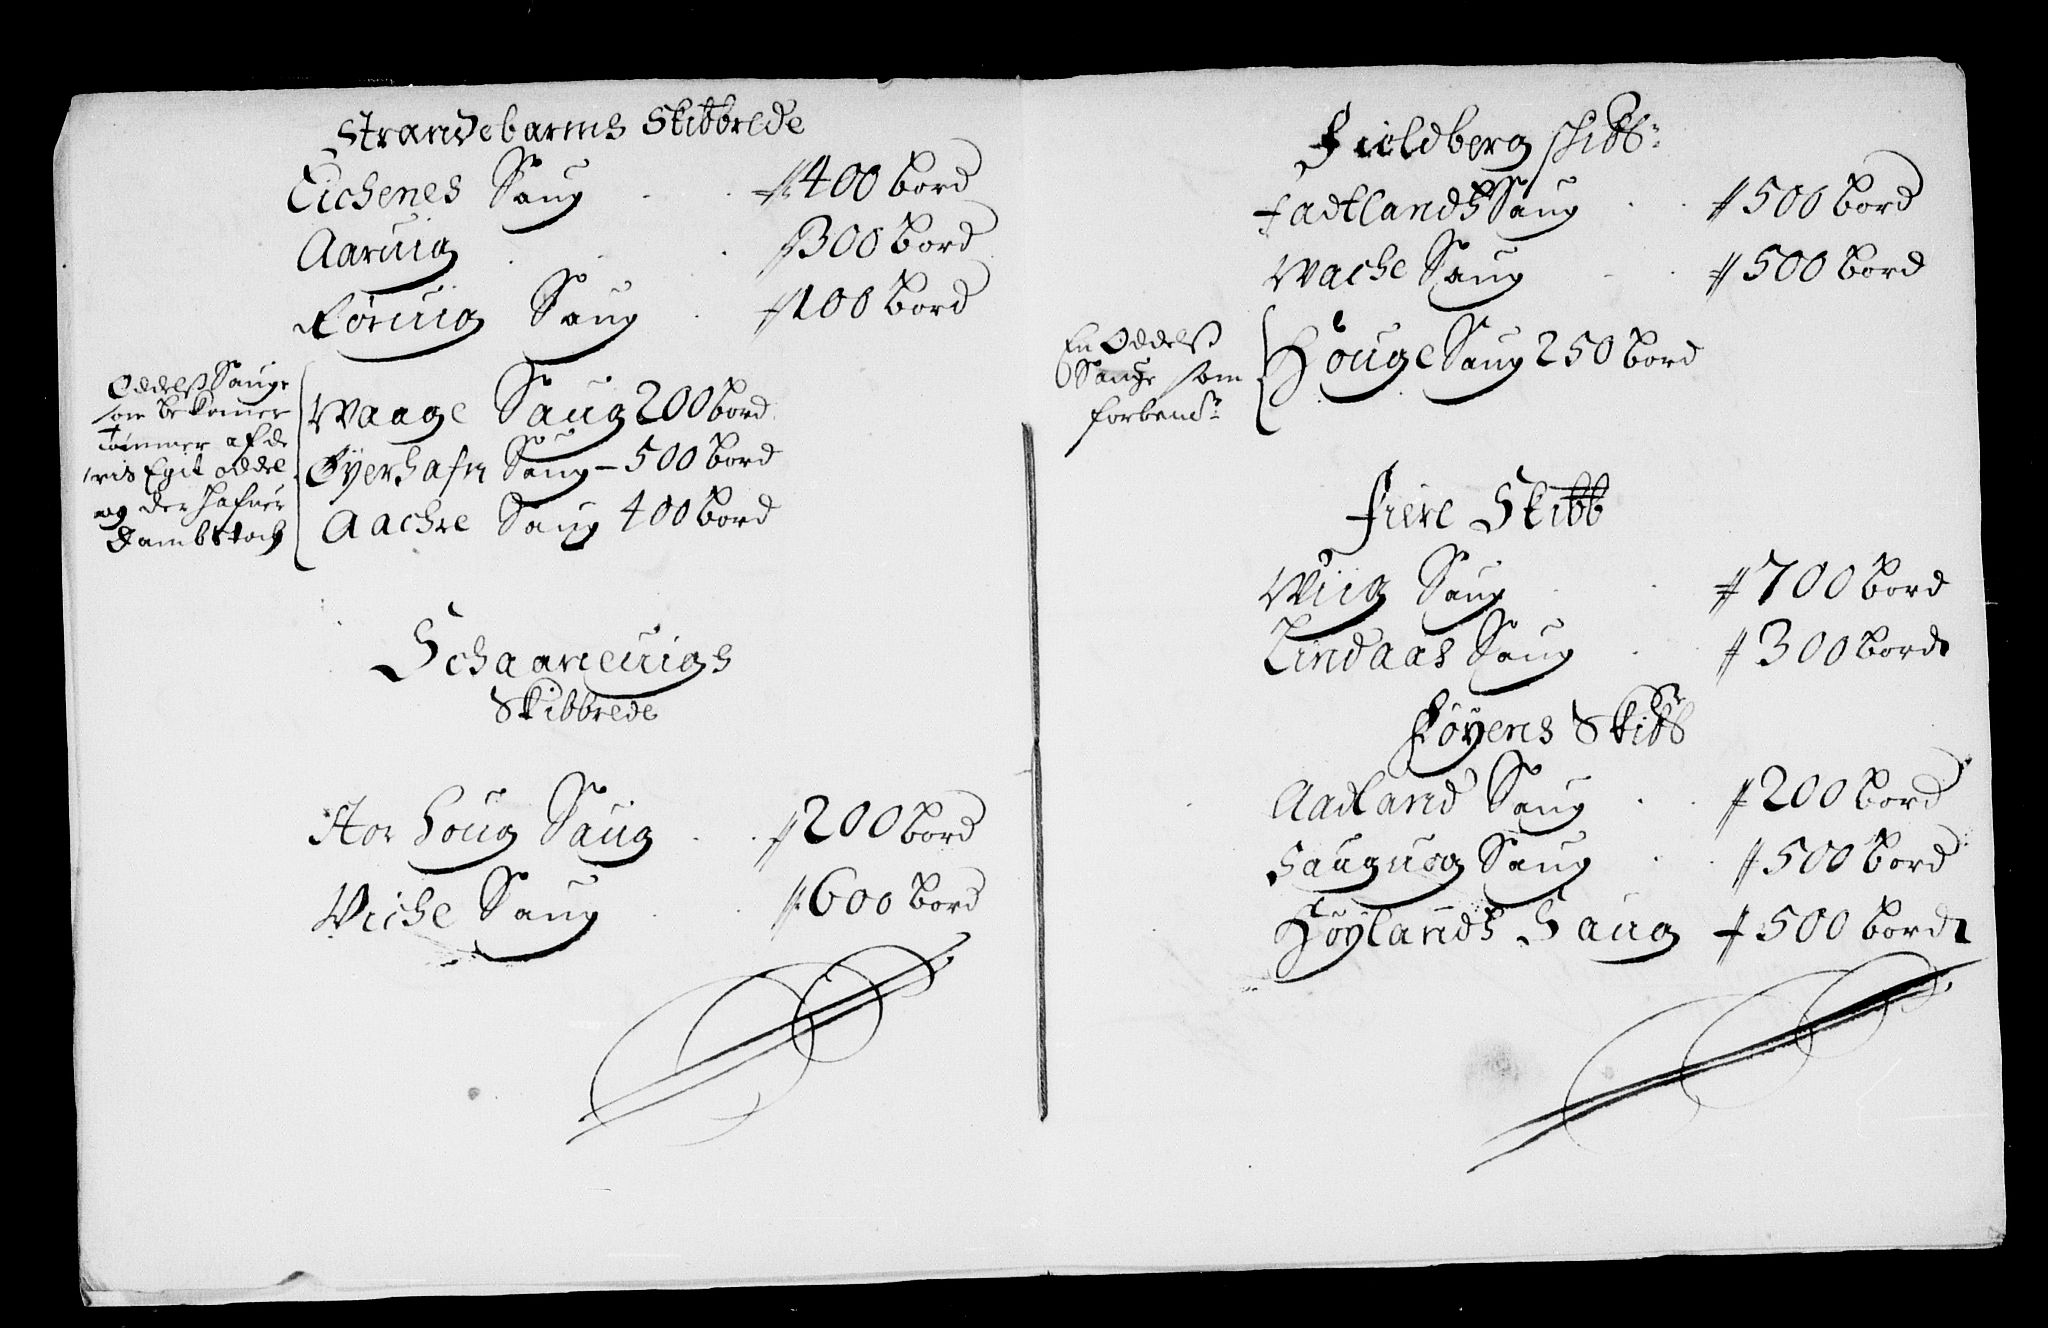 Strandebarms Skibbrede
Eichenes Saug # 400 bord
Aaruig # 300 bord
Røruig Saug # 100 bord
Oddelß Sauge
som bekomer
Tømmer af de
ris Egit oddel
og der hafuer
Dambstoch
Waage Saug 200 bord
Øyerhafn Saug – 500 bord
Aachre Saug 400 bord
Schaaneuigs
Skibbrede
Stor houg Saug # 200 bord
Viche Saug # 600 bord
Fieldberg skibb:
Fadtlandts Saug # 500 bord
Wache Saug # 500 bord
En Oddelß
Sauge som
forben:
Höuge Saug 250 bord
Fiere Skibb
Wiig Saug # 700 bord
Lindaas Saug # 300 bord
Føyens Skibb
Aadland Saug # 200 bord
Sauguog Saug # 500 bord
Höylandts Saug # 500 bord